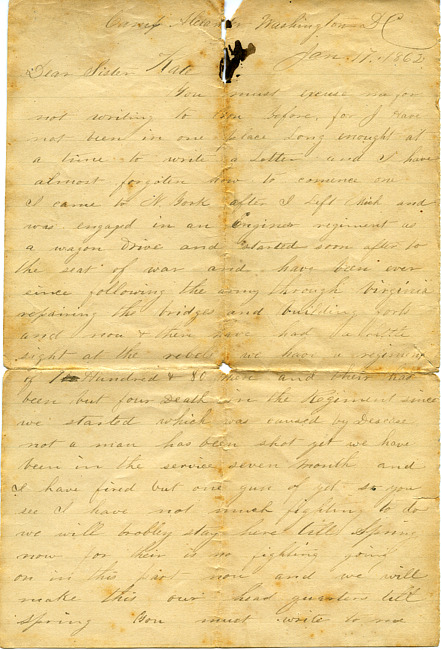 Camp Washington DC
Jan. 17. 1862
Dear Sister Kate
You must excuse me for
not writing to you before, for I have
not been in one place long enought at
a time to write a Letter and I have
almost forgoten how to comence one
I came to N. York after I left Mich and
was engaged in an Engineer regiment as
a wagon Drive and started soon after to
the seat of war and have been ever
since following the army through Virginia
repairing the bridges and building forts
and now & then have had a little
sight at the rebels we have a regiment
of Hundred & 80 men and their has
been but four Death in the Regiment since
we started which was caused by Desease
not a man has been shot yet we have
been in the service seven month and
I have fired but one gun of yet so you
see I have not much fighting to do
we will brobley stay here till Spring
now for their is no fighting going
on in this part now and we will
make this our head quarters till
spring You must write to me